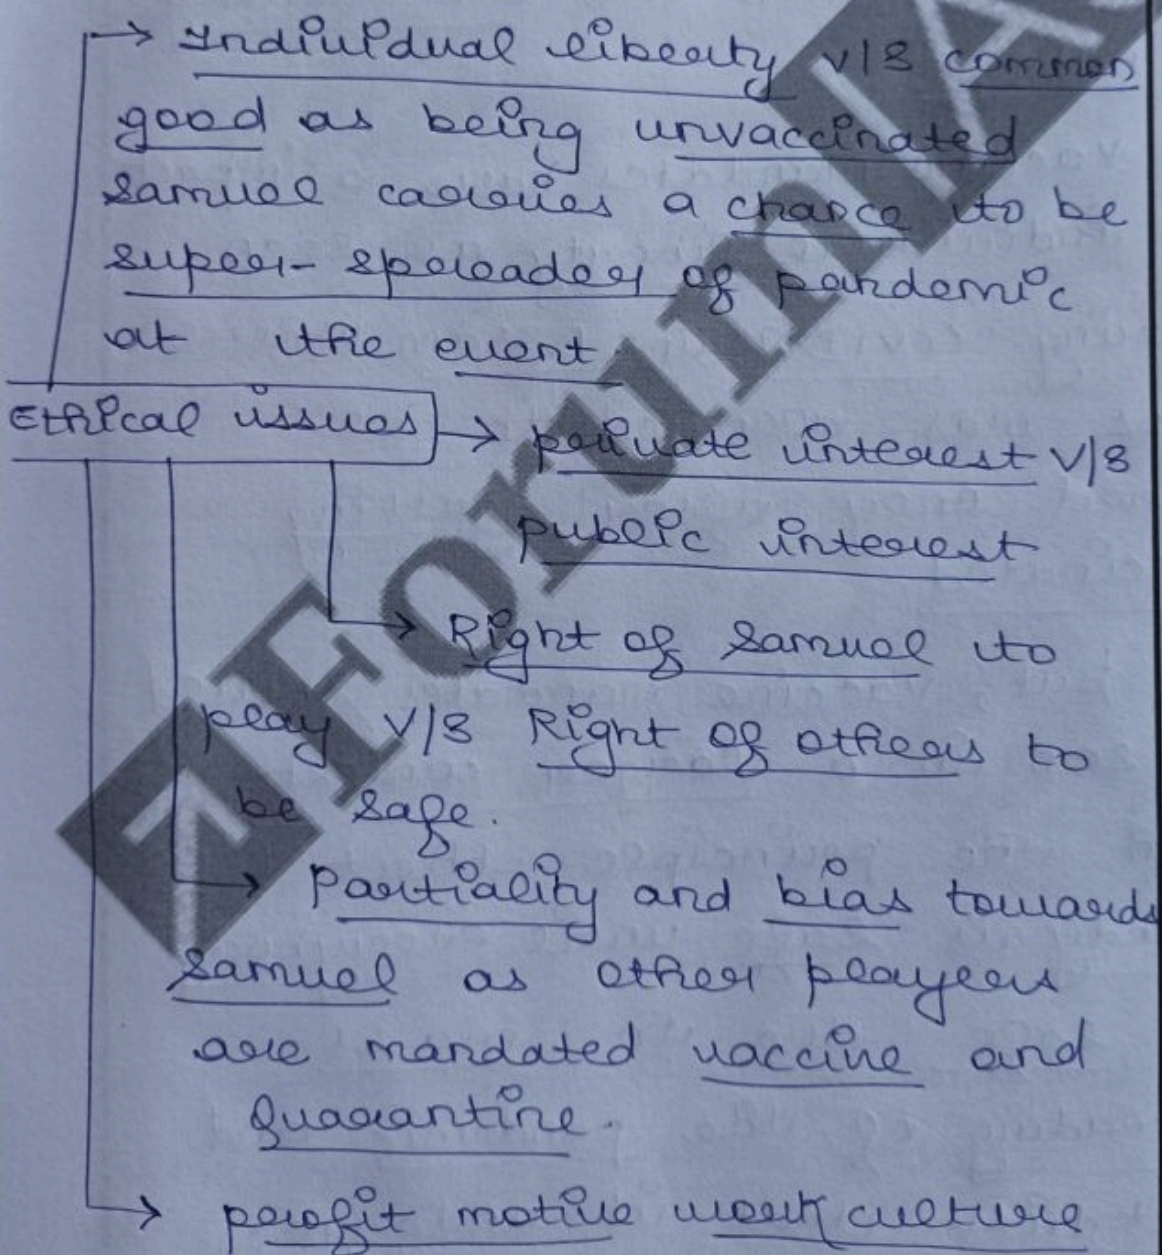 → Individual liberty v/s common
good as being unvaccinated
Samuel carries a chance to be
super-spreader of pandemic
at the event.
Ethical issues → private interest v/s
public interest
→ Right of Samuel to
play v/s Right of others to
be safe.
→ Partiality and bias towards
Samuel as other players
are mandated vaccine and
Quarantine.
→ profit motive work culture
ForumIAS